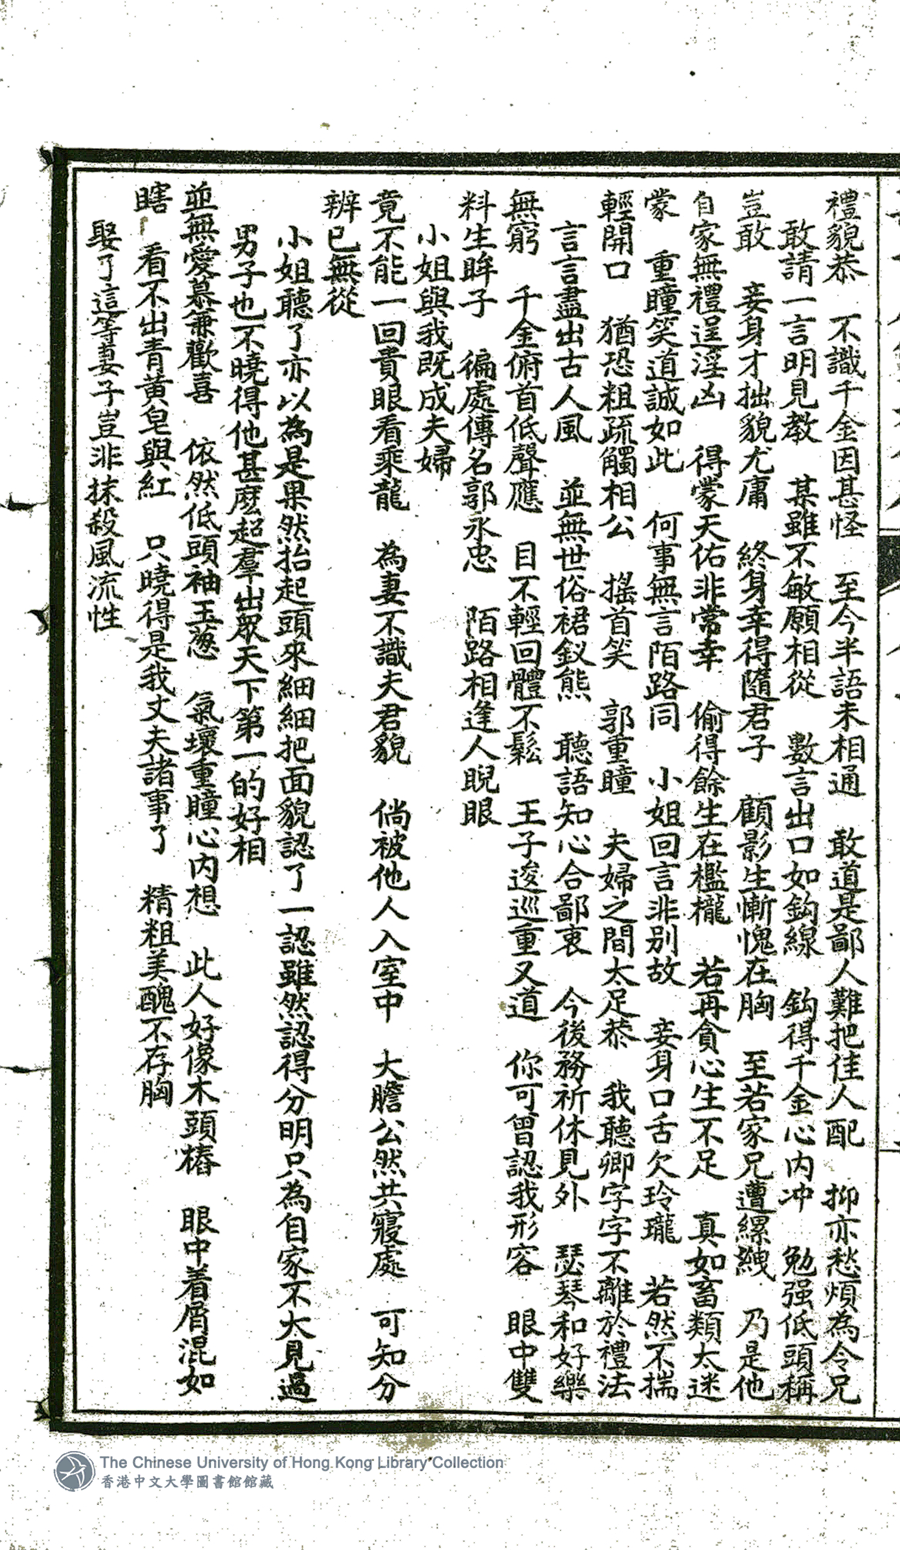 禮貌恭　不識千金因甚怪　至今半語未相通　敢道是鄙人難把佳人配　抑亦愁煩為令兄
敢請一言明見教　某雖不敏願相從　數言出口如鈎線　鈎得千金心內冲　勉强低頭稱
豈敢　妾身才拙貌尤庸　終身幸得隨君子　顧影生慚愧在胸　至若家兄遭縲絏　乃是他
自家無禮逞淫凶　得蒙天佑非常幸　偷得餘生在檻櫳　若再貪心生不足　真如畜類太迷
蒙　重瞳笑道誠如此　何事無言陌路同　小姐回言非別故　妾身口舌欠玲瓏　若然不揣
輕開口　猶恐粗疏觸相公　搖首笑　郭重瞳　夫婦之間太足恭　我聽卿字字不離於禮法
言言盡出古人風　並無世俗裙釵態　聽語知心合鄙衷　今後務祈休見外　瑟琴和好樂
無窮　千金俯首低聲應　目不輕回體不鬆　王子逡巡重又道　你可曾認我形容　眼中雙
料生眸子　徧處傳名郭永忠　陌路相逢人睨眼
小姐與我既成夫婦
竟不能一回貴眼看乘龍　為妻不識夫君貌　倘被他人入室中　大膽公然共寢處　可知分
辨已無從
小姐聽了亦以為是果然抬起頭來細細把面貌認了一認雖然認得分明只為自家不大見過
男子也不曉得他甚麽超羣出眾天下第一的好相
並無愛慕兼歡喜　依然低頭袖玉葱　氣壞重瞳心內想　此人好像木頭樁　眼中着屑混如
瞎　看不出青黃皂與紅　只曉得是我丈夫諸事了　精粗美醜不存胸
娶了這等妻子豈非抹殺風流性
The Chinese University of Hong Kong Library Collection
香港中文大學圖書館館藏